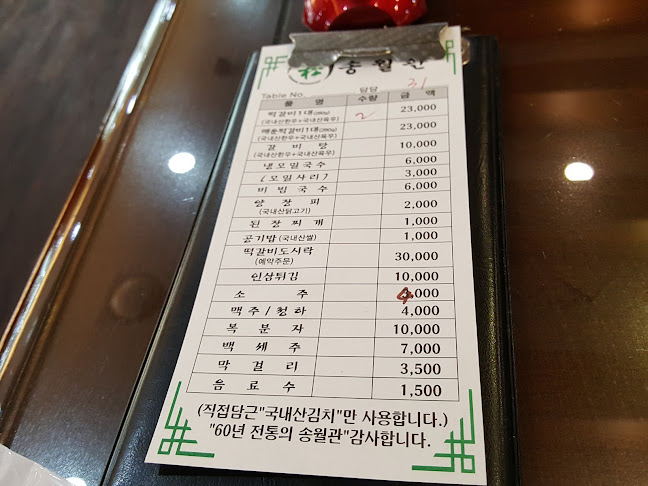 송월관
Table No. 담당 31
품 명 수량 금 액
떡갈비1대(280g) 2 23,000
(국내산한우+국내산육우)
매운떡갈비1대(280g) 23,000
(국내산한우+국내산육우)
갈 비 탕 10,000
(국내산한우+국내산육우)
냉모밀국수 6,000
(모밀사리) 3,000
비빔국수 6,000
양 장 피 2,000
(국내산닭고기)
된장찌개 1,000
공기밥(국내산쌀) 1,000
떡갈비도시락 30,000
(예약주문)
인삼튀김 10,000
소 주 4,000
맥주/청하 4,000
복 분 자 10,000
백 세 주 7,000
막 걸 리 3,500
음 료 수 1,500
(직접담근"국내산김치"만 사용합니다.)
"60년 전통의 송월관"감사합니다.